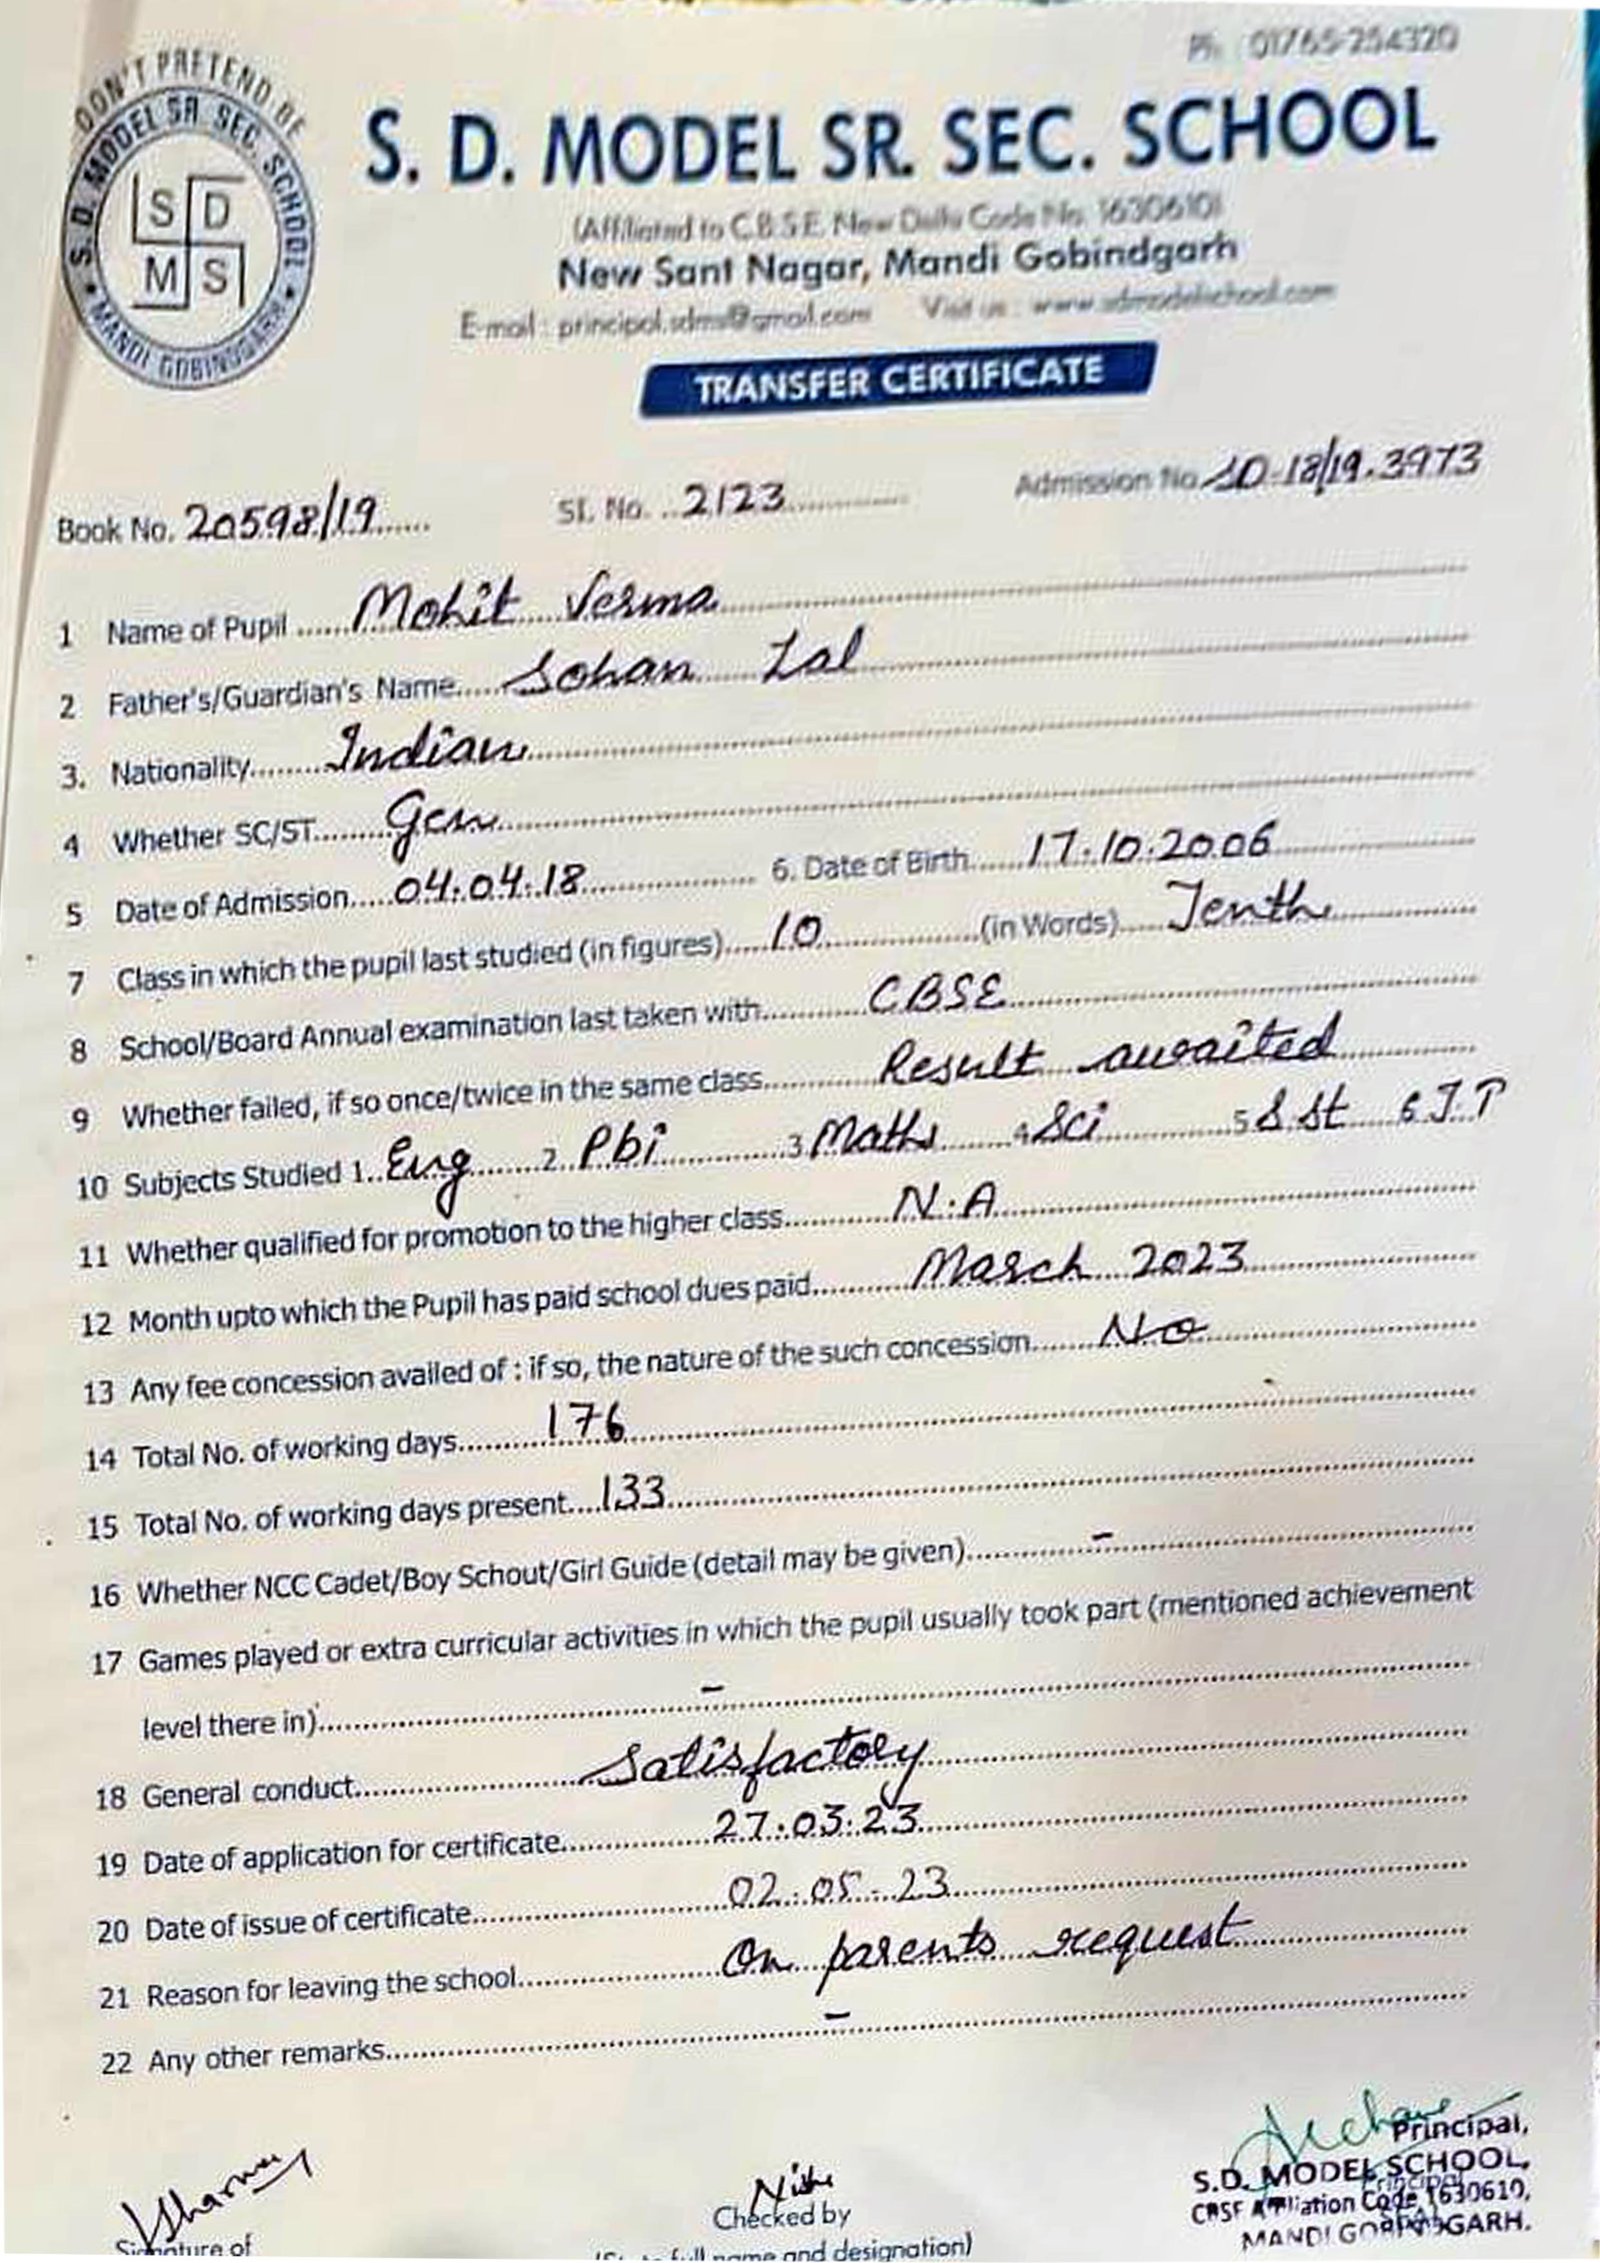 Ph : 01765-254320
DON'T PRETEND BE
S. D. MODEL SR. SEC. SCHOOL
MANDI GOBINDGARH
S D
M S
S. D. MODEL SR. SEC. SCHOOL
(Affiliated to C.B.S.E. New Delhi Code No. 1630610)
New Sant Nagar, Mandi Gobindgarh
E-mail : principal.sdms@gmail.com Visit us : www.sdmodelschool.com
TRANSFER CERTIFICATE
Book No. 20598/19 Sl. No. 2123 Admission No. SD-18/19.3973
1 Name of Pupil Mohit Verma
2 Father's/Guardian's Name Sohan Lal
3. Nationality Indian
4 Whether SC/ST Gen
5 Date of Admission 04.04.18 6. Date of Birth 17.10.2006
7 Class in which the pupil last studied (in figures) 10 (in Words) Tenth
8 School/Board Annual examination last taken with CBSE
9 Whether failed, if so once/twice in the same class Result awaited
10 Subjects Studied 1 Eng 2 Pbi 3 Maths 4 Sci 5 S St 6 I.T
11 Whether qualified for promotion to the higher class N.A
12 Month upto which the Pupil has paid school dues paid March 2023
13 Any fee concession availed of : if so, the nature of the such concession No
14 Total No. of working days 176
15 Total No. of working days present 133
16 Whether NCC Cadet/Boy Schout/Girl Guide (detail may be given) -
17 Games played or extra curricular activities in which the pupil usually took part (mentioned achievement
level there in) -
18 General conduct Satisfactory
19 Date of application for certificate 27.03.23
20 Date of issue of certificate 02.05.23
21 Reason for leaving the school On parents request
22 Any other remarks -
Sharma Nisha Archana
Principal,
S.D. MODEL SCHOOL,
CBSE Affiliation Code 1630610,
MANDI GOBINDGARH.
Signature of Checked by
full name and designation)